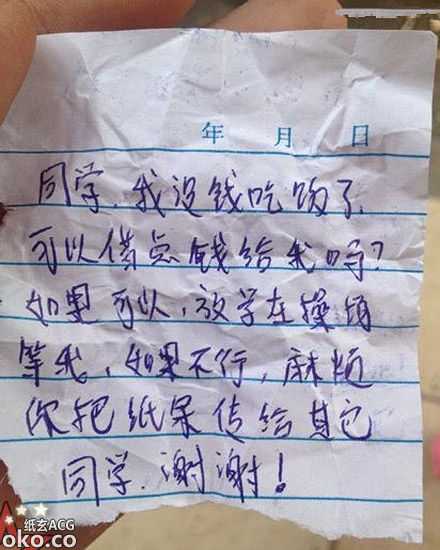 年 月 日
同学,我没钱吃饭了,
可以借点钱给我吗?
如果可以,放学在操场
等我,如果不行,麻烦
你把纸条传给其它
同学,谢谢!
纸玄ACG
oko.co